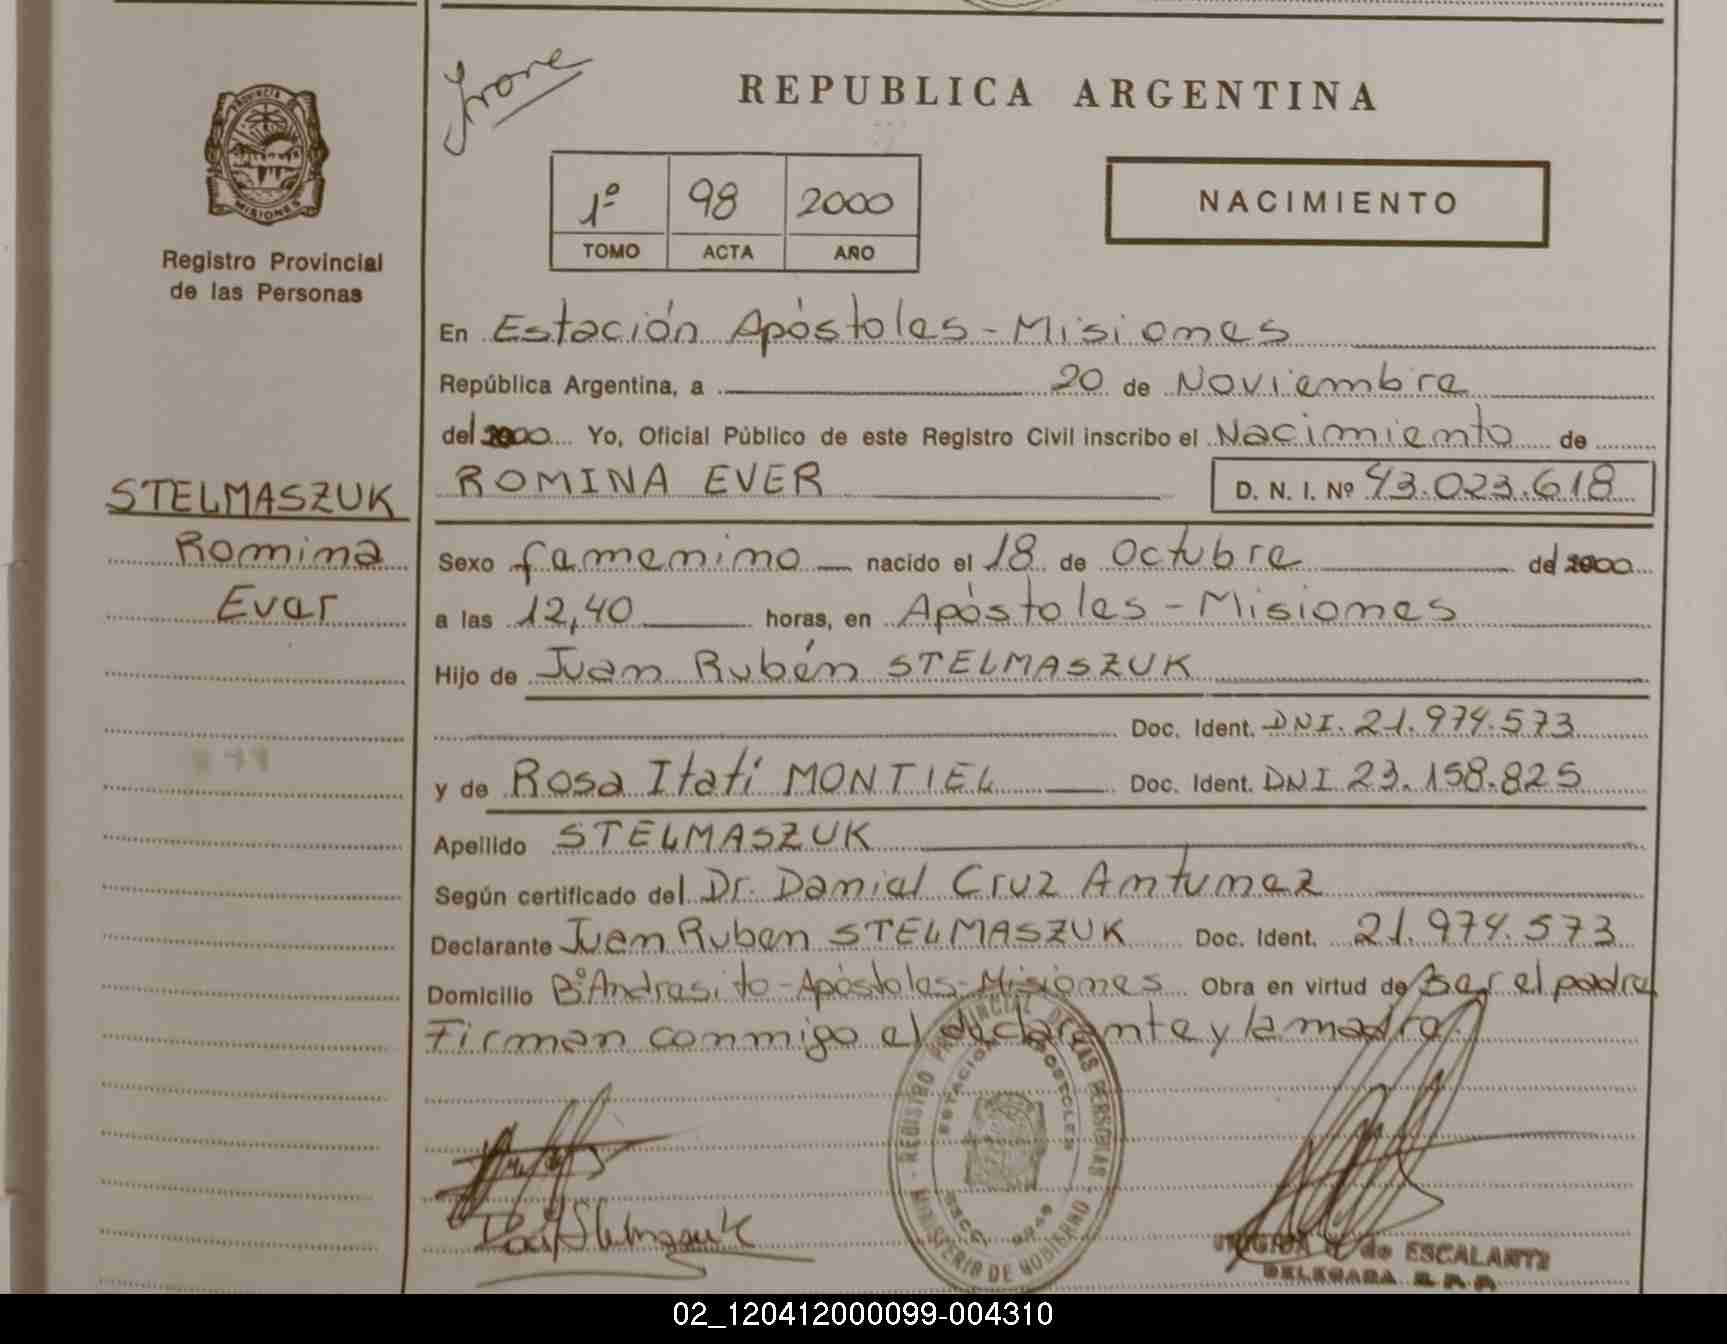 Irone
REPUBLICA ARGENTINA
PROVINCIA DE
MISIONES
1º 98 2000
TOMO ACTA AÑO
NACIMIENTO
Registro Provincial
de las Personas
En Estación Apóstoles - Misiones
República Argentina, a 20 de Noviembre
del 2000 Yo, Oficial Público de este Registro Civil inscribo el Nacimiento de
ROMINA EVER D. N. I. Nº 43.023.618
STELMASZUK
Romina
Ever
Sexo femenino nacido el 18 de Octubre del 2000
a las 12,40 horas, en Apóstoles - Misiones
Hijo de Juan Rubén STELMASZUK
Doc. Ident. DNI. 21.974.573
y de Rosa Itatí MONTIEL Doc. Ident. DNI 23.158.825
Apellido STELMASZUK
Según certificado del Dr. Daniel Cruz Antunez
Declarante Juan Ruben STELMASZUK Doc. Ident. 21.974.573
Domicilio Bº Andresito - Apóstoles - Misiones Obra en virtud de Ser el padre
Firman conmigo el declarante y la madre.
REGISTRO PROVINCIAL DE LAS PERSONAS
ESTACION APOSTOLES
MINISTERIO DE GOBIERNO
de ESCALANTE
DELEGADA R. P. P.
02_120412000099-004310